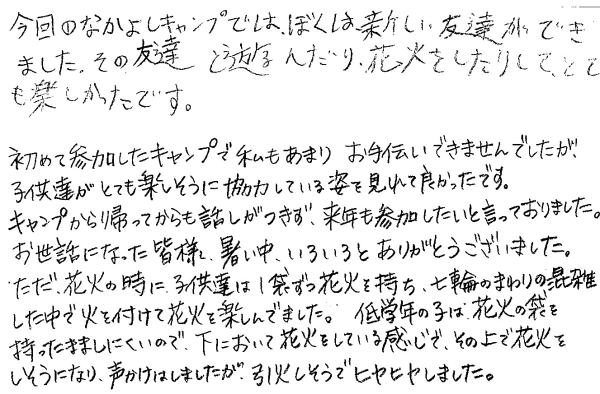 今回のなかよしキャンプでは、ぼくは、新しい友達ができ
ました。その友達と遊んだり、花火をしたりして、とて
も楽しかったです。
初めて参加したキャンプで私もあまりお手伝いできませんでしたが、
子供達がとても楽しそうに協力している姿を見れて良かったです。
キャンプから帰ってからも話しがつきず、来年も参加したいと言っておりました。
お世話になった皆様、暑い中、いろいろとありがとうございました。
ただ、花火の時に、子供達は1袋ずつ花火を持ち、七輪のまわりの混雑
した中で火を付けて花火を楽しんでました。低学年の子は、花火の袋を
持ったまましにくいので、下において花火をしている感じで、その上で花火を
しそうになり、声かけはしましたが、引火しそうでヒヤヒヤしました。